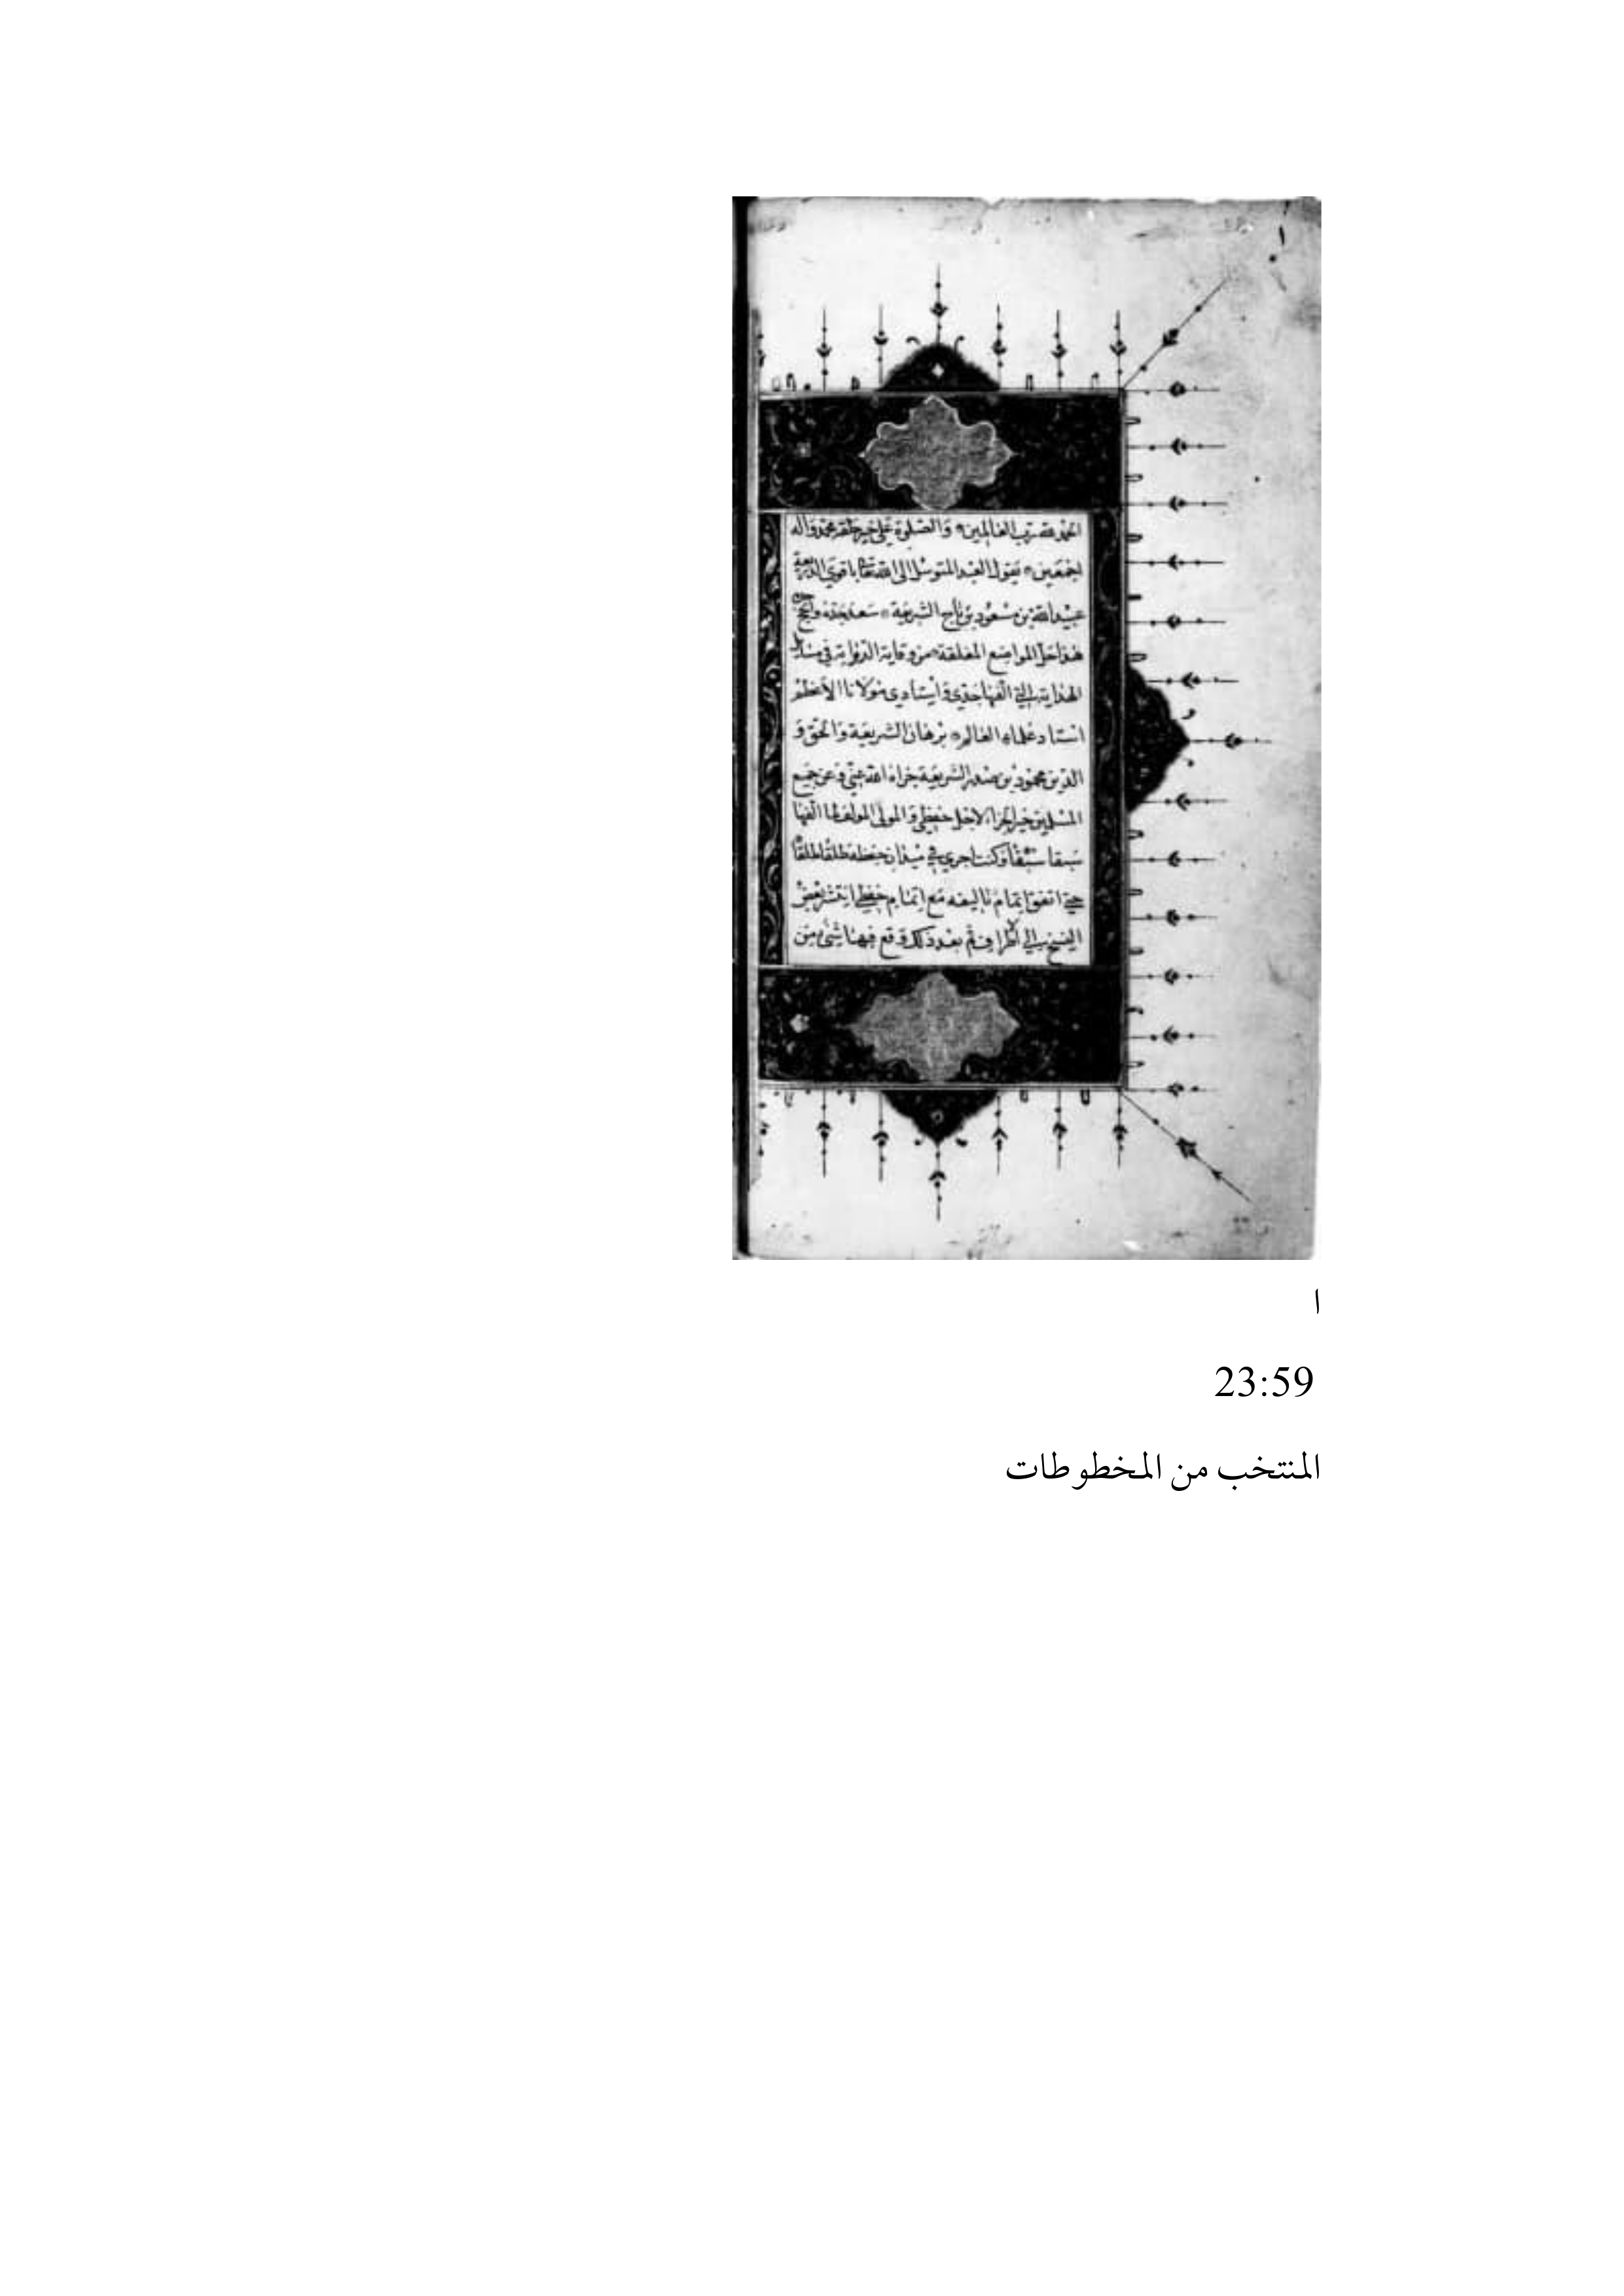 الحمد لله رب العالمين والصلوة على خير خلقه محمد واله
اجمعين يقول العبد المتوسل الى الله تعالى باقوى الذريعة
عبيد الله بن مسعود بن تاج الشريعة سعد جده وانجح جده
هذا حل المواضع المغلقة من وقاية الرواية في مسائل
الهداية التي الفها جدي و استادي مولانا الاعظم
استاد علماء العالم برهان الشريعة والحق و
الدين محمود بن صدر الشريعة جزاه الله عني وعن جميع
المسلمين خير الجزاء لاجل حفظي والمولى المولف لما الفها
سبقا سبقا وكنت اجري في ميدان حفظه طلقا طلقا
حتى اتفق اتمام تاليفه مع اتمام حفظي انتشر بعض
النسخ في الاطراف ثم بعد ذلك وقع فيها شيء من
ا
23:59
المنتخب من المخطوطات